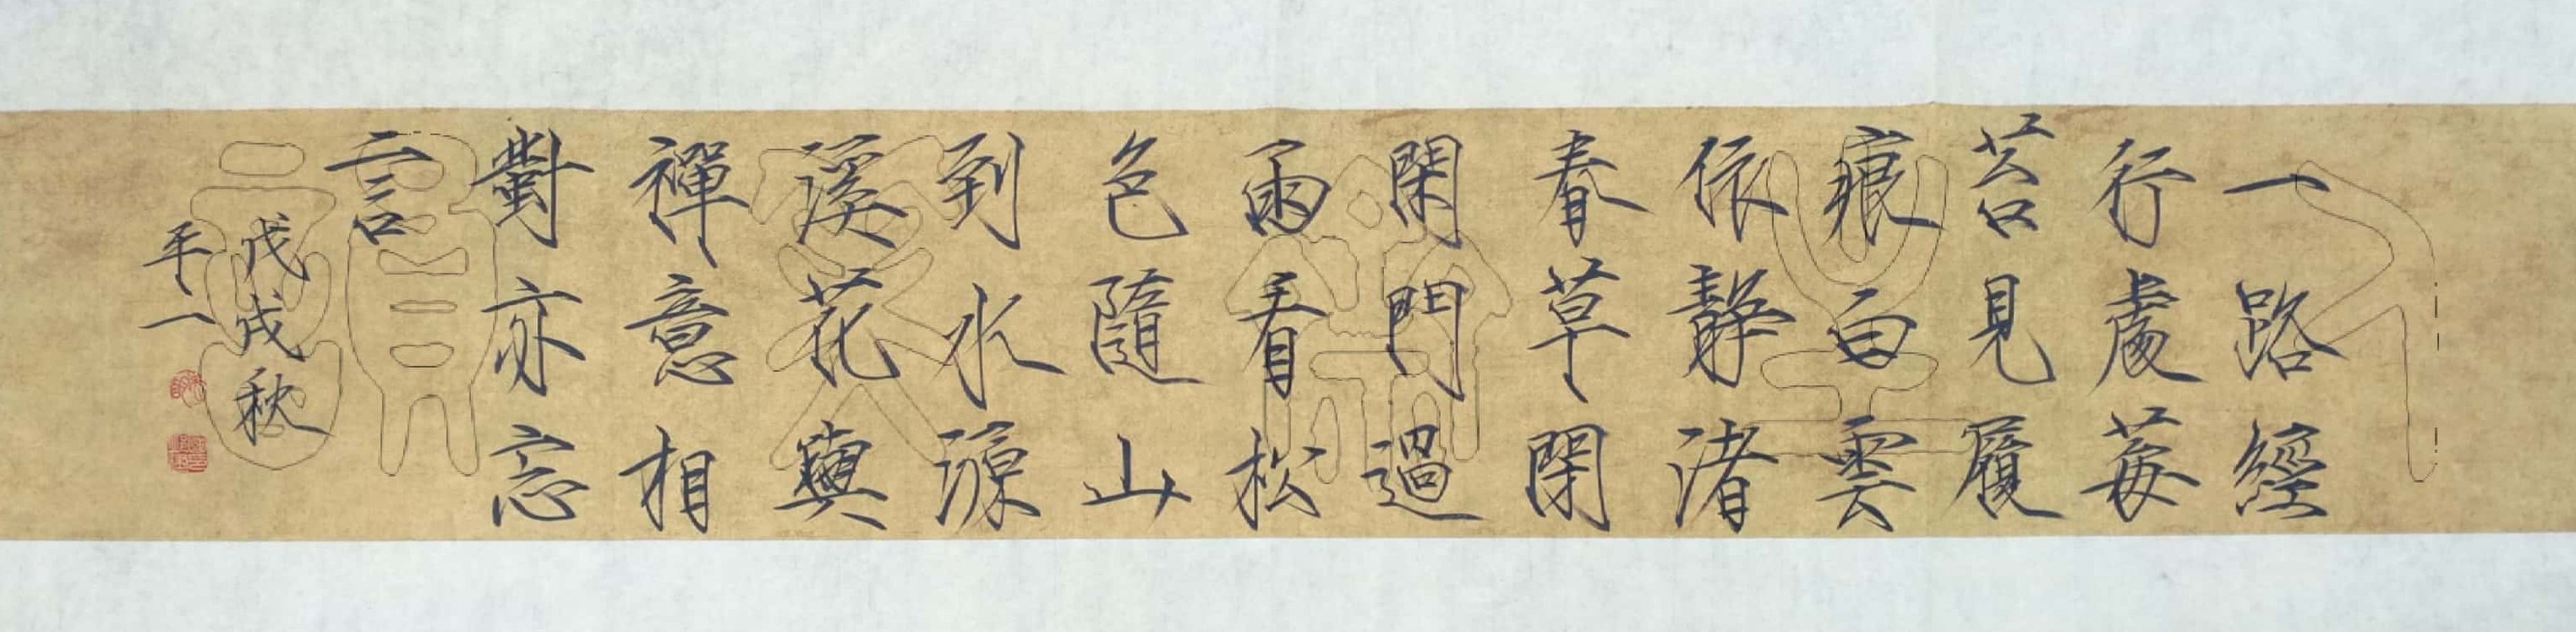 一路經
行處莓
苔見履
痕白雲
依靜渚
春草閉
閑門過
雨看松
色隨山
到水源
溪花與
禪意相
對亦忘
言
戊戌秋
平一